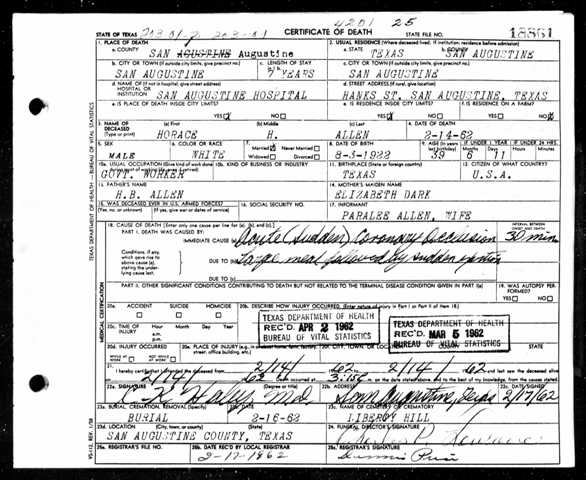 4201 25
STATE OF TEXAS 203 01-2 203-01 CERTIFICATE OF DEATH STATE FILE NO. 18861
1. PLACE OF DEATH 2. USUAL RESIDENCE (Where deceased lived. If institution: residence before admission)
a. COUNTY SAN AGUSTINE Augustine a. STATE TEXAS b. COUNTY SAN AUGUSTINE
b. CITY OR TOWN (If outside city limits, give precinct no.) c. LENGTH OF STAY c. CITY OR TOWN (If outside city limits, give precinct no.)
SAN AUGUSTINE YEARS SAN AUGUSTINE
d. NAME OF (If not in hospital, give street address) d. STREET ADDRESS (If rural, give location)
HOSPITAL OR INSTITUTION SAN AUGUSTINE HOSPITAL HANKS ST. SAN AUGUSTINE, TEXAS
e. IS PLACE OF DEATH INSIDE CITY LIMITS? e. IS RESIDENCE INSIDE CITY LIMITS? f. IS RESIDENCE ON A FARM?
YES NO YES NO YES NO
3. NAME OF DECEASED (a) First (b) Middle (c) Last 4. DATE OF DEATH
HORACE H. ALLEN 2-14-62
5. SEX 6. COLOR OR RACE 7. Married Never Married Widowed Divorced 8. DATE OF BIRTH 9. AGE IF UNDER 1 YEAR IF UNDER 24 HRS.
MALE WHITE 8-3-1922 39 6 11
10a. USUAL OCCUPATION 10b. KIND OF BUSINESS OR INDUSTRY 11. BIRTHPLACE (State or foreign country) 12. CITIZEN OF WHAT COUNTRY?
GOVT. WORKER TEXAS U.S.A.
13. FATHER'S NAME 14. MOTHER'S MAIDEN NAME
H.B. ALLEN ELIZABETH DARK
15. WAS DECEASED EVER IN U.S. ARMED FORCES? 16. SOCIAL SECURITY NO. 17. INFORMANT
(Yes, no, or unknown) (If yes, give war or dates of service) PARALEE ALLEN, WIFE
18. CAUSE OF DEATH [Enter only one cause per line for (a), (b), and (c).] INTERVAL BETWEEN ONSET AND DEATH
PART I. DEATH WAS CAUSED BY:
IMMEDIATE CAUSE (a) Acute (Sudden) Coronary Occlusion 30 min
Conditions, if any, which gave rise to above cause (a), stating the underlying cause last. DUE TO (b) Large meal followed by sudden
DUE TO (c)
PART II. OTHER SIGNIFICANT CONDITIONS CONTRIBUTING TO DEATH BUT NOT RELATED TO THE TERMINAL DISEASE CONDITION GIVEN IN PART I (a) 19. WAS AUTOPSY PERFORMED?
YES NO
20a. ACCIDENT SUICIDE HOMICIDE 20b. DESCRIBE HOW INJURY OCCURRED. (Enter nature of injury in Part I or Part II of item 18.)
20c. TIME OF INJURY Hour Month Day Year a.m. p.m.
TEXAS DEPARTMENT OF HEALTH
REC'D. APR 2 1962
BUREAU OF VITAL STATISTICS
TEXAS DEPARTMENT OF HEALTH
REC'D MAR 5 1962
BUREAU OF VITAL STATISTICS
20d. INJURY OCCURRED WHILE AT WORK NOT WHILE AT WORK 20e. PLACE OF INJURY 20f. CITY, TOWN, OR LOCATION
21. I hereby certify that I attended the deceased from 2/14 62 2/14 62 and last saw the deceased alive
2/14 62 3:15 m. on the date stated above; and to the best of my knowledge, from the causes stated.
22a. SIGNATURE (Degree or title) 22b. ADDRESS 22c. DATE SIGNED
C. R. Haley Md San Augustine, Texas 2/17/62
23a. BURIAL, CREMATION, REMOVAL (Specify) 23b. DATE 23c. NAME OF CEMETERY OR CREMATORY
BURIAL 2-16-62 LIBERTY HILL
23d. LOCATION (City, town, or county) (State) 24. FUNERAL DIRECTOR'S SIGNATURE
SAN AUGUSTINE COUNTY, TEXAS
25a. REGISTRAR'S FILE NO. 25b. DATE REC'D BY LOCAL REGISTRAR 25c. REGISTRAR'S SIGNATURE
2-17-1962
TEXAS DEPARTMENT OF HEALTH—BUREAU OF VITAL STATISTICS
MEDICAL CERTIFICATION
VS-112, REV. 1/58